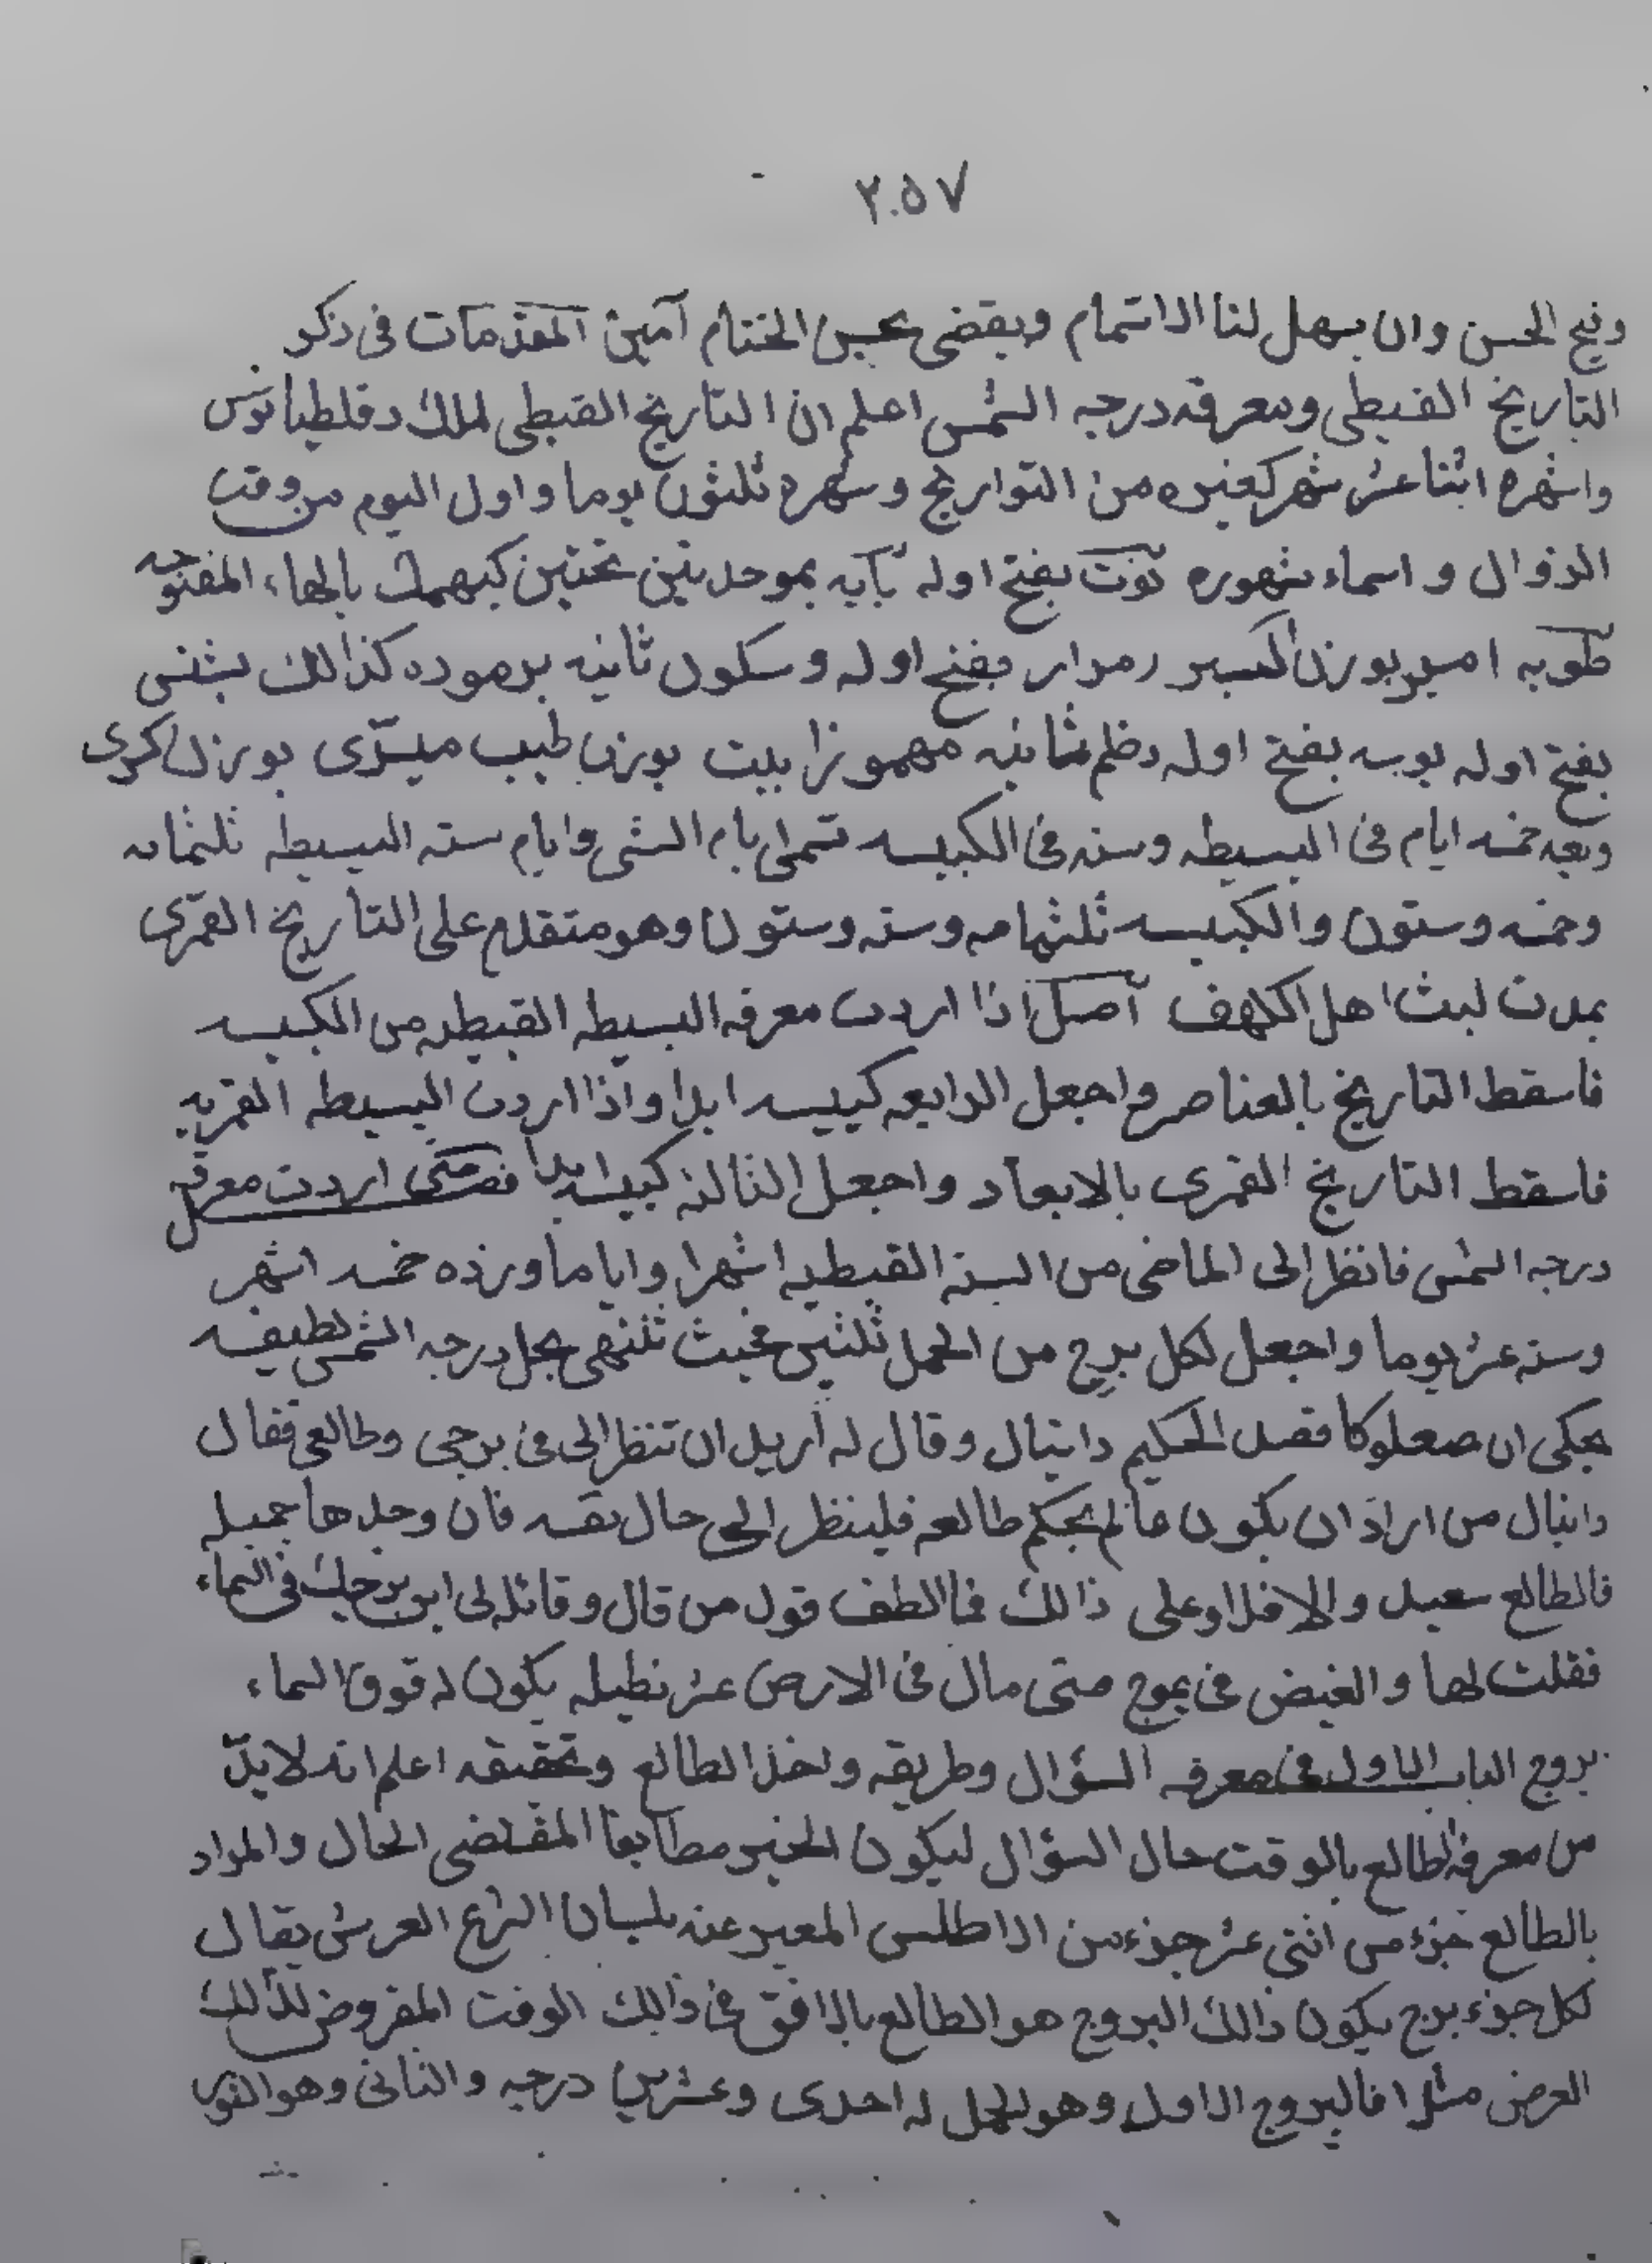 ٢٠٥٧
ونيح الحسن وان يسهل لنا الاتمام ويقضى بحسن الختام آمين المقدمات فى ذكر
التاريخ القبطى ومعرفه درجه الشمس اعلم ان التاريخ القبطى لملك دقلطيانوس
واشهره اثنا عشر شهر كغيره من التواريخ وشهره ثلثون يوما واول اليوم من وقت
الزوال واسماء شهوره توت بفتح اوله بابه بموحدتين تحتين كيهمك بالهاء المفتوحه
طوبه امير بوزن اكسير رمرار بفتح اوله وسكون ثانيه برموده كذالك بشنس
بفتح اوله بوبه بفتح اوله وظم ثانيه مهموزا بيت بوزن طبيب ميسرى بوزن كرى
وبعد خمسه ايام فى البسيطه وسته فى الكبيسه تسمى ايام النسى وايام سنه البسيطه ثلثمائه
وخمسه وستون والكبيسه ثلثمامه وسته وستون وهو متقدم على التأريخ القمرى
بمدت لبث اهل الكهف آصل اذا اردت معرفه البسيطه القبطيه من الكبيسه
فأسقط التاريخ بالعناصر واجعل الرابعه كبيسه ابدا واذا اردت البسيطه القمريه
فاسقط التاريخ القمرى بالابعاد واجعل الثالثه كبيسه ابدا فصل متى اردت معرفه
درجه الشمس فانظر الى الماضى من السنه القبطيه اشهرا واياما وزده خمسه اشهر
وسته عشر يوما واجعل لكل برج من الحمل ثلثين فحيث تنتهى بحل درجه الشمس لطيفه
يحكى ان صعلوكا قصد الحكيم دانيال وقال له أريد ان تنظر الى فى برجى وطالعى فقال
دانيال من اراد ان يكون عالم بحكم طالعه فلينظر الى حال نفسه فان وجدها جميله
فالطالع سعيد والا فلا وعلى ذالك فما الطف قول من قال وقائله لى اين برجك فى السماء
فقلت لها والغيض فى يموج متى مال فى الارض عشر نطيله يكون له فوق السماء
بروج الباب الاول فى معرفه السؤال وطريقه واخذ الطالع وتحقيقه اعلم انه لابدّ
من معرفه الطالع بالوقت حال السؤال ليكون الخبر مطابقا المقتضى الحال والمراد
بالطالع جزء من اثنى عشر جزء من الاطلس المعبر عنه بلسان الشرع العرش يقال
لكل جزء برج يكون ذالك البروج هو الطالع بالافق فى ذالك الوقت المفروض لذالك
العرض مثلا فالبروج الاول وهو الحمل له احدى وعشرين درجه والثانى وهو الثور